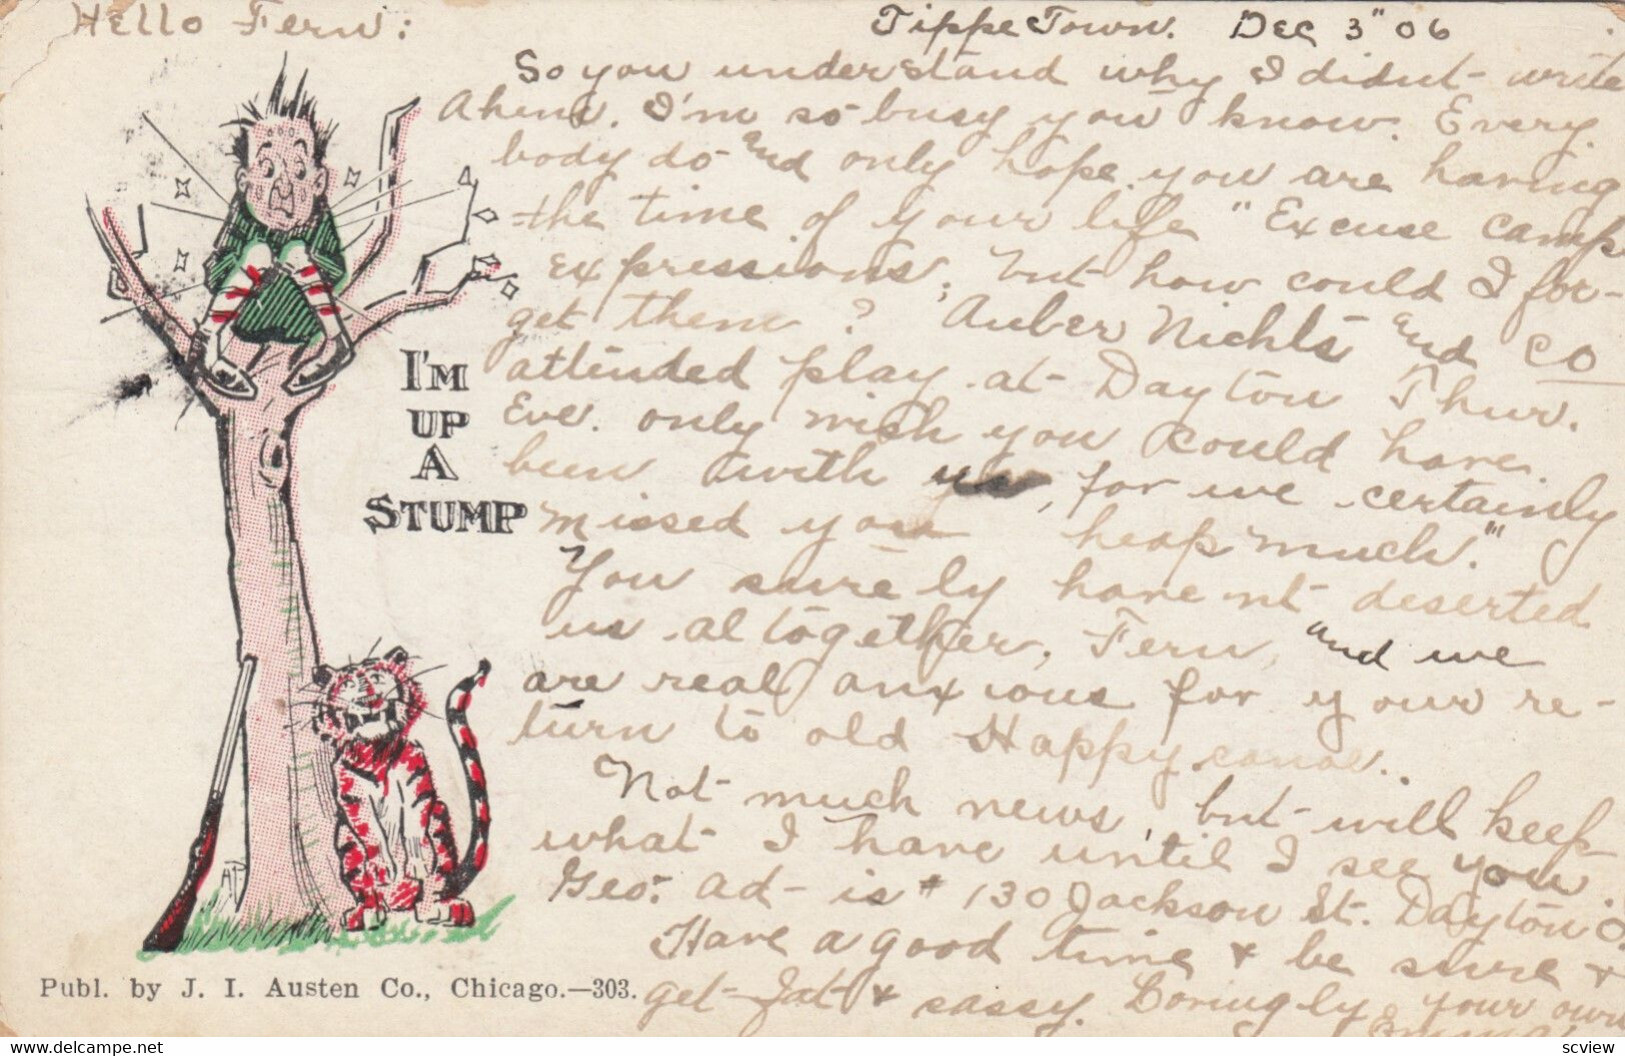 Hello Fern:
TippeTown. Dec 3" 06
So you understand why I didnt- write
Ahem. I'm so busy you know. Every
body do and only hope you are having
the time of your life "Excuse camps
expressions, but how could I for-
get them? Auber Nichls and Co
attended play at Dayton Thur.
Eve. only wish you could have
been with us, for we certainly
missed you heap much."
You surely havent deserted
us altogether, Fern, and we
are real anxious for your re-
turn to old Happy canoe.
Not much news, but will keep
what I have until I see you
Geo. ad- is # 130 Jackson St. Dayton O.
Have a good time & be sure &
get fat & sassy. Lovingly your own
Emma
I'M
UP
A
STUMP
AP
Publ. by J. I. Austen Co., Chicago.—303.
https://www.delcampe.net
scview